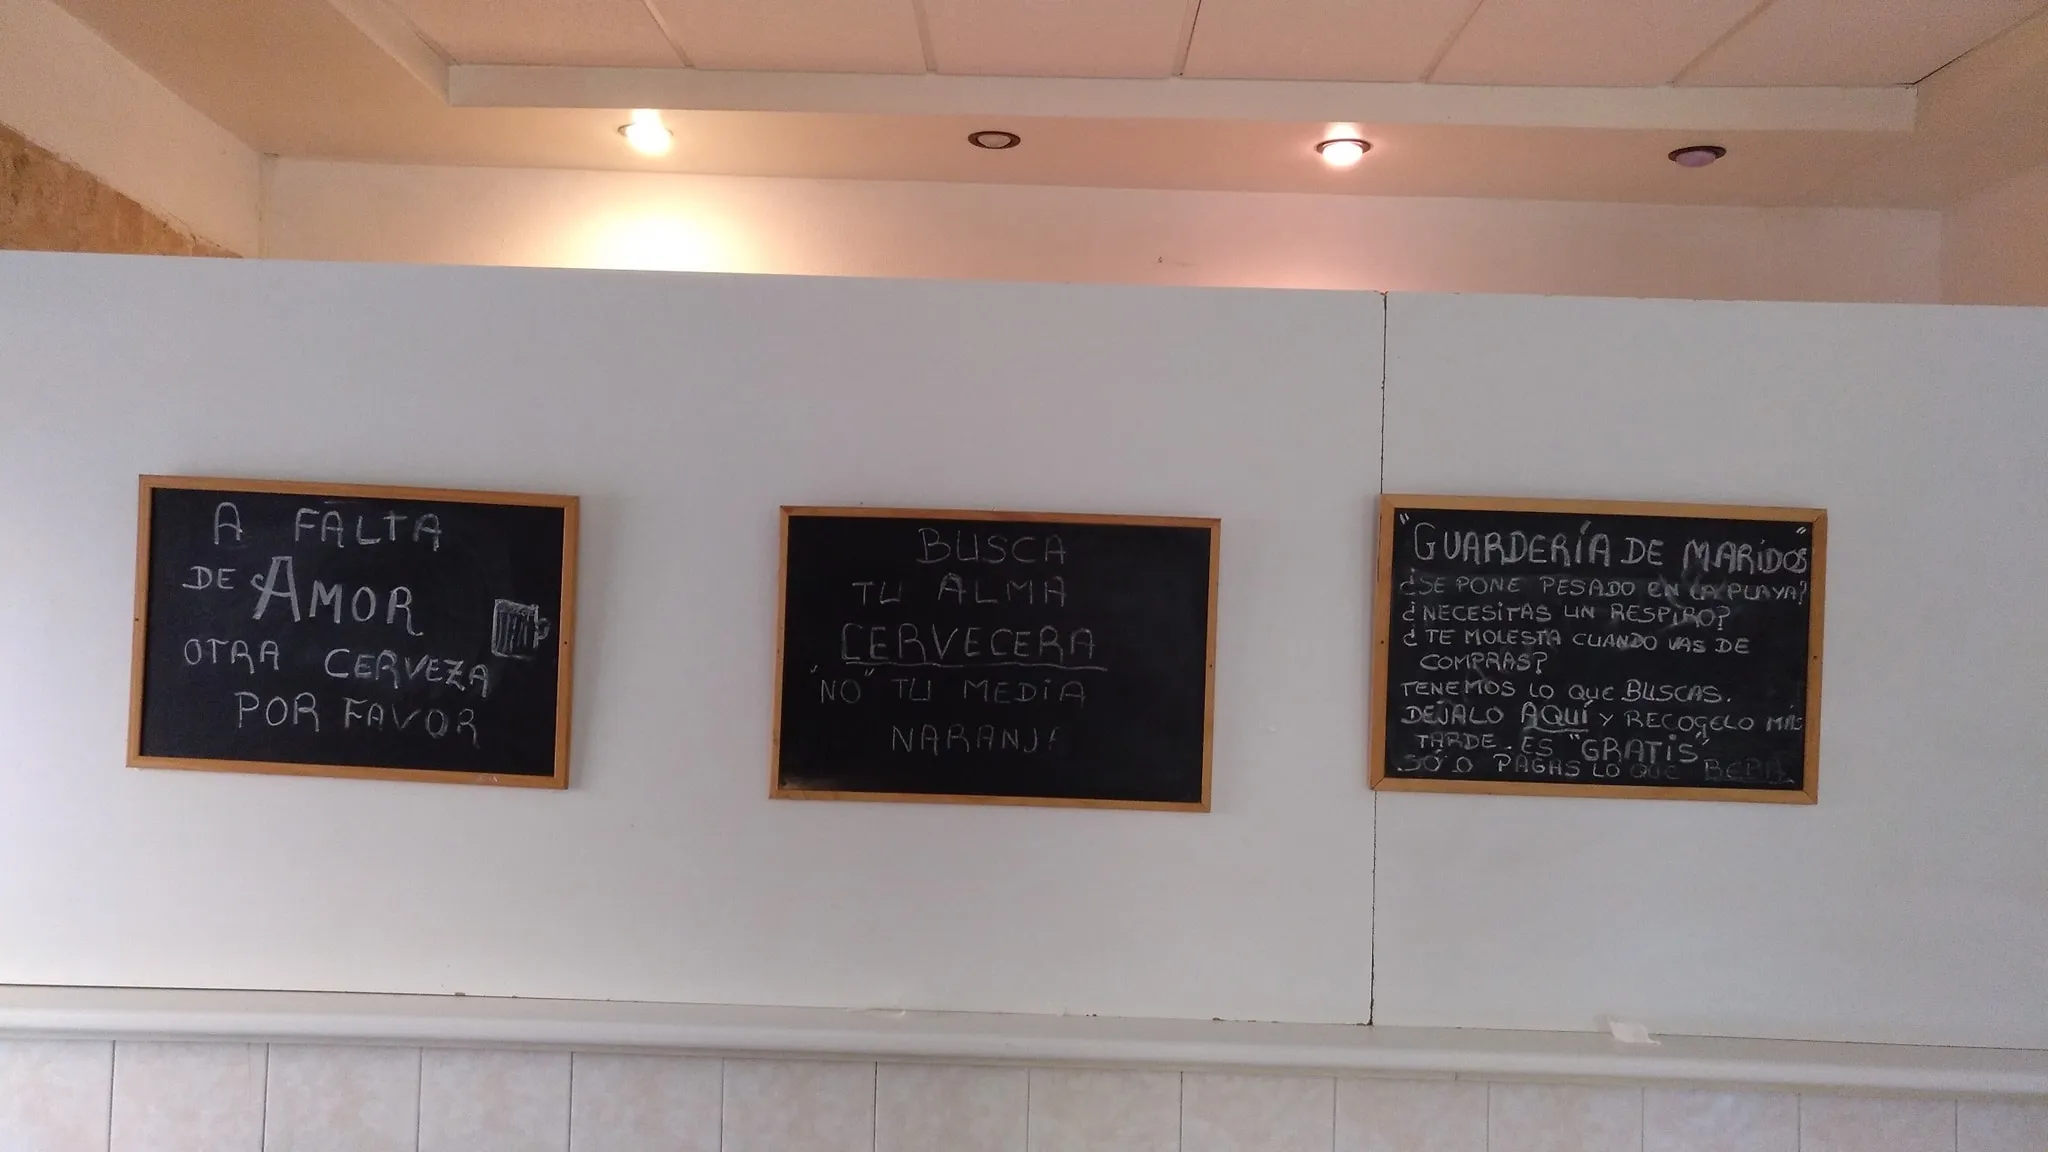 A FALTA
DE AMOR
OTRA CERVEZA
POR FAVOR
BUSCA
TU ALMA
CERVECERA
"NO" TU MEDIA
NARANJ
"GUARDERÍA DE MARIDOS"
¿SE PONE PESADO EN LA PLAYA?
¿NECESITAS UN RESPIRO?
¿TE MOLESTA CUANDO VAS DE
COMPRAS?
TENEMOS LO QUE BUSCAS.
DEJALO AQUÍ Y RECOGELO MÁS
TARDE. ES "GRATIS"
SÓ O PAGAS LO QUE BEBA